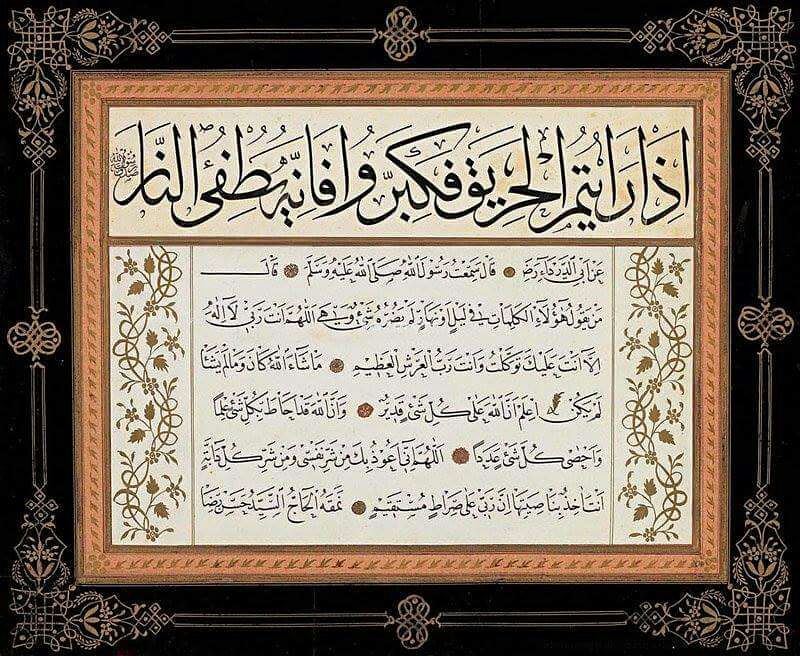 اذا رايتم الحريق فكبروا فانه يطفئ النار
عن ابى الدرداء رض قال سمعت رسول الله صلى الله عليه وسلم قال
من يقول هؤلاء الكلمات فى ليل او نهار لم يضره شئ وهى اللهم انت ربى لا اله
الا انت عليك توكلت وانت رب العرش العظيم ما شاء الله كان وما لم يشأ
لم يكن اعلم ان الله على كل شئ قدير وان الله قد احاط بكل شئ علما
واحصى كل شئ عددا اللهم انى اعوذ بك من شر نفسى ومن شر كل دابة
انت اخذ بناصيتها ان ربى على صراط مستقيم نمقه الحاج السيد حسن رضا